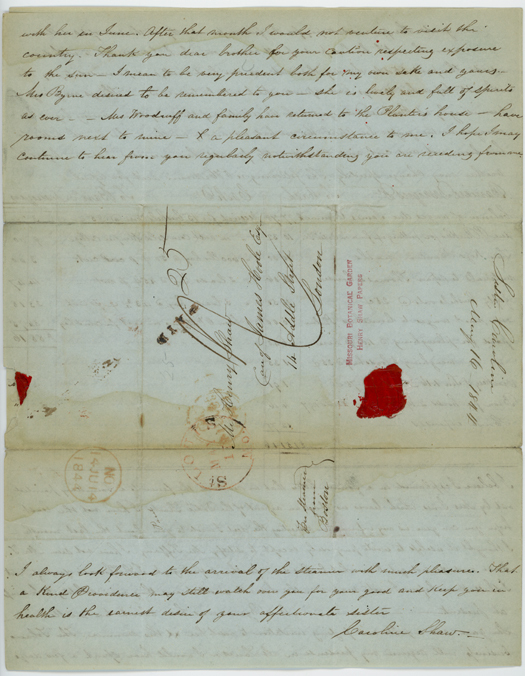 with her in June. After that month I would not venture to visit the
country. Thank you dear brother for your caution respecting exposure
to the sun — I mean to be very prudent both for my own sake and yours —
Mrs Byrne desired to be remembered to you — she is lively and full of spirits
as ever — Mrs Woodruff and family have returned to the Planter's house — have
rooms next to mine — & a pleasant circumstance to me. I hope I may
continue to hear from you regularly notwithstanding you are receding from me
PAID
25
Mr Henry Shaw
care of James Hoole Esq
London
MISSOURI BOTANICAL GARDEN
HENRY SHAW PAPERS
Caroline
May 16 1844
14 JU 14
1844
MAY
Per Steamer
from
Boston
I always look forward to the arrival of the Steamer with much pleasure. That
a Kind Providence may still watch over you for your good and keep you in
health is the earnest desire of your affectionate sister
Caroline Shaw —